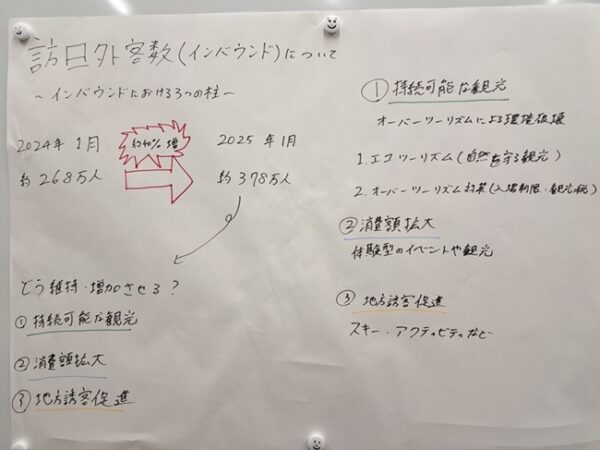 訪日外客数(インバウンド)について
～インバウンドにおける3つの柱～
2024年 1月
約40%増
2025年1月
約268万人
約378万人
どう維持・増加させる?
① 持続可能な観光
② 消費額拡大
③ 地方誘客促進
① 持続可能な観光
オーバーツーリズムによる環境破壊
1. エコツーリズム(自然を守る観光)
2. オーバーツーリズム対策(入場制限・観光税)
② 消費額拡大
体験型のイベントや観光
③ 地方誘客促進
スキー・アクティビティなど